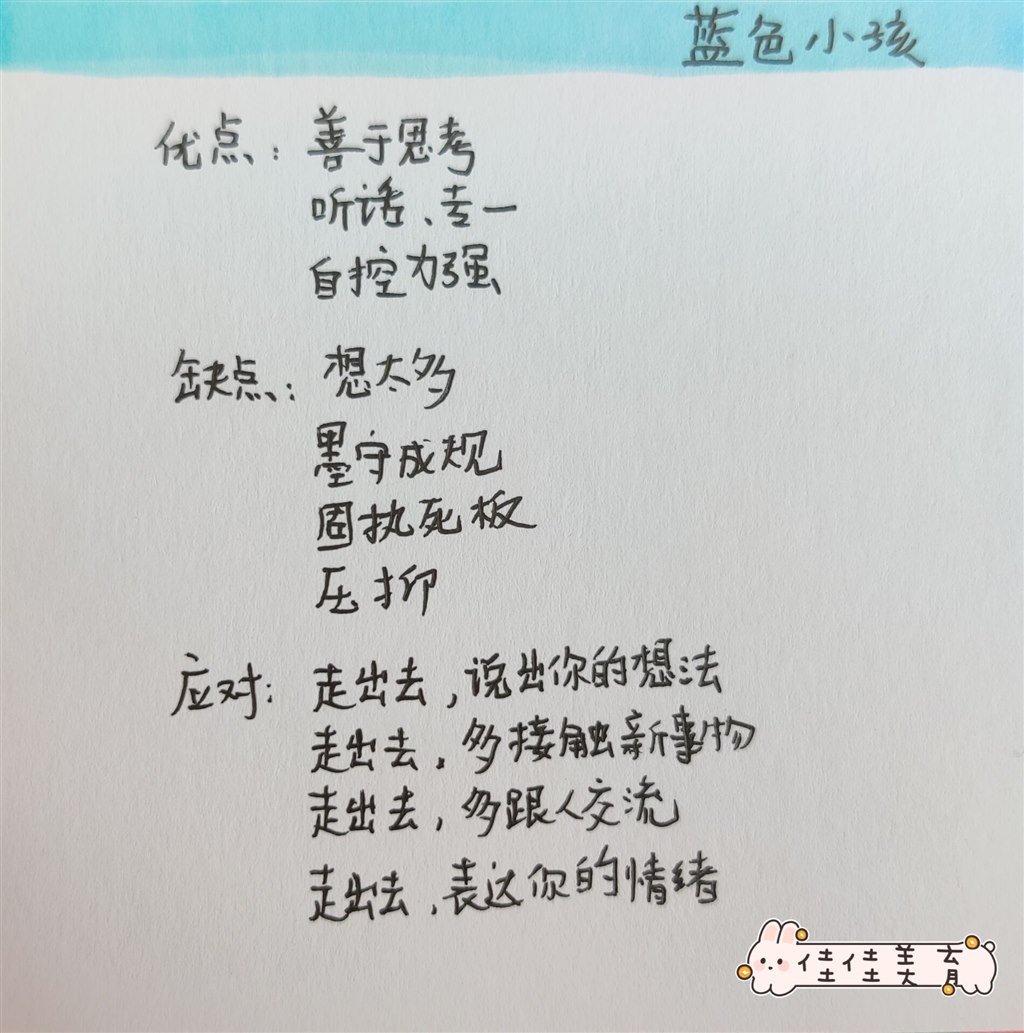 蓝色小孩
优点：善于思考
听话、专一
自控力强
缺点：想太多
墨守成规
固执死板
压抑
应对：走出去，说出你的想法
走出去，多接触新事物
走出去，多跟人交流
走出去，表达你的情绪
佳佳美育